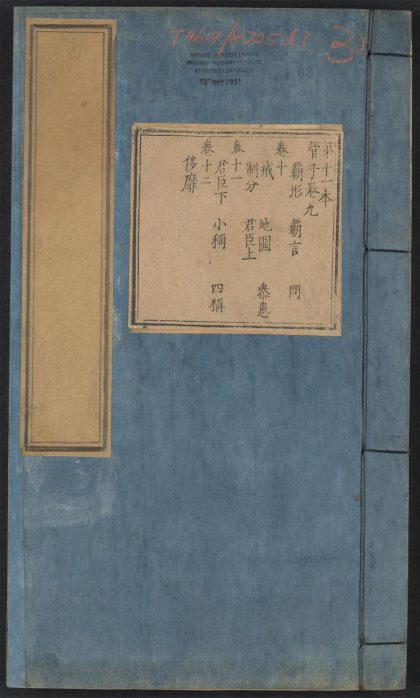 T 4614/8725d(
3)
CHINESE-JAPANESE LIBRARY
HARVARD-YENCHING INSTITUTE
AT HARVARD UNIVERSITY
1951
第十一本
管子卷九
霸形 霸言 問
卷十
戒 地圖 叅患
制分 君臣上
卷十一
君臣下 小稱 四稱
卷十二
侈靡